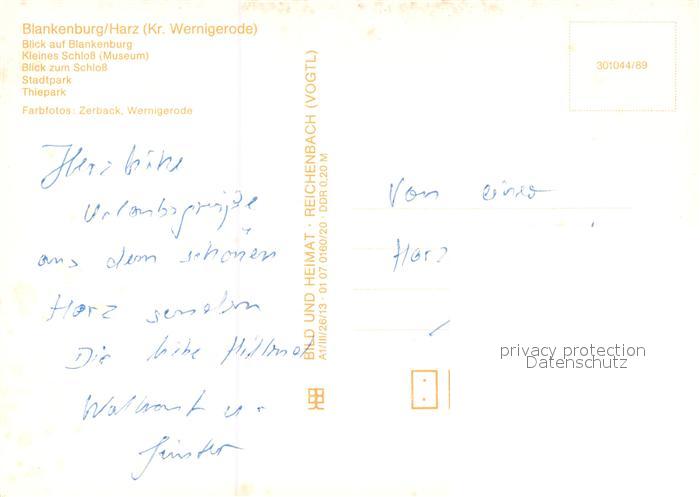 Blankenburg/Harz (Kr. Wernigerode)
Blick auf Blankenburg
Kleines Schloß (Museum)
Blick zum Schloß
Stadtpark
Thiepark
Farbfotos: Zerback, Wernigerode
Herzliche
Urlaubsgrüße
aus dem schönen
Harz senden
Die
u.
BILD UND HEIMAT · REICHENBACH (VOGTL)
A1/III/26/13 · 01 07 0160/20 · DDR 0,20 M
301044/89
Von einer
Harz
privacy protection
Datenschutz